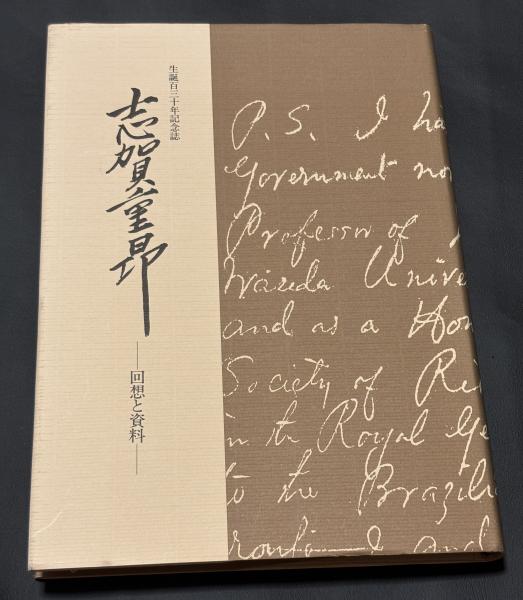 生誕百三十年記念誌
志賀重昂
―回想と資料―
P.S. I ha
Government no
Professor of
Waseda Unive
and as a Hon
Society of Ri
in the Royal Ge
to the Brazili
I and